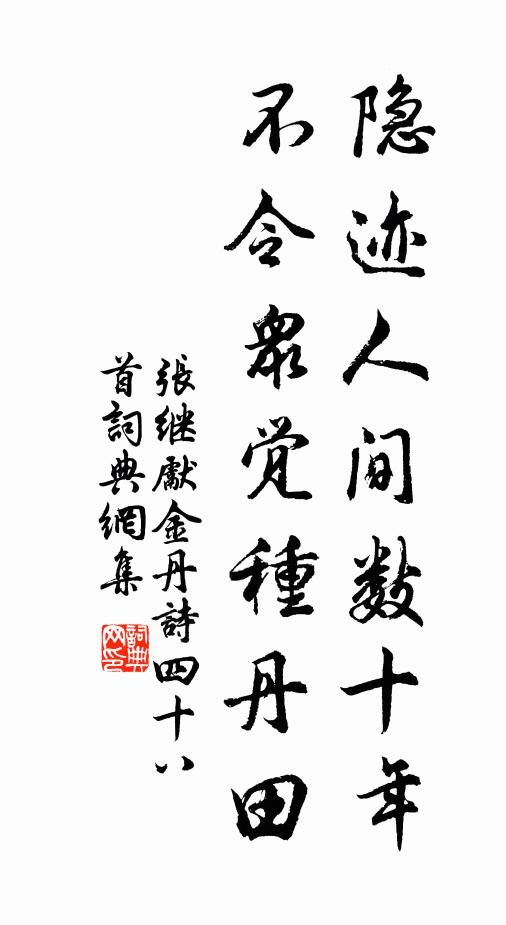 隐迹人间数十年
不令眾觉種丹田
張继獻金丹詩四十八
首詞典網集
詞典
网印